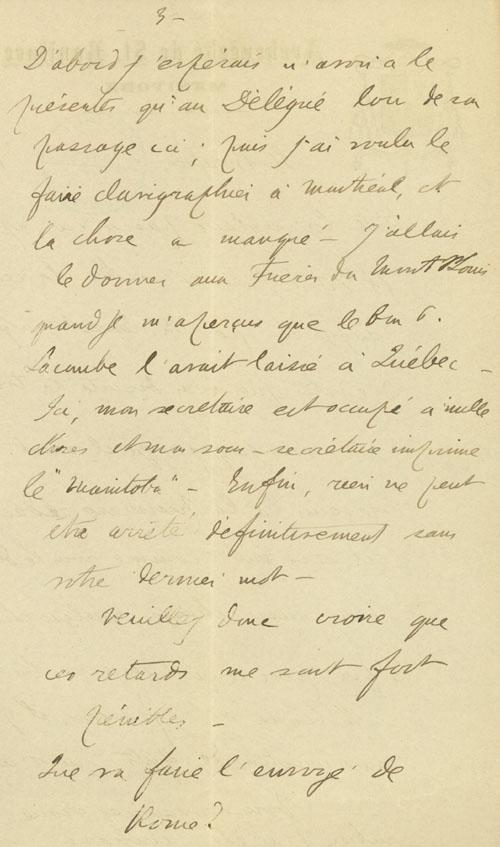 3-
D'abord j'espérais n'avoir à le
présenter qu'au Délégué lors de son
passage ici ; puis j'ai voulu le
faire clavigraphier à Montréal, et
la chose a manqué - J'allais
le donner aux Frères du Mont St Louis
quand je m'aperçus que le bon P.
Lacombe l'avait laissé à Québec -
Ici, mon secrétaire est occupé à mille
choses et mon sous-secrétaire imprime
le "Manitoba" - Enfin, rien ne peut
être arrêté définitivement sans
votre dernier mot -
Veuillez donc croire que
ces retards me sont fort
pénibles -
Que va faire l'envoyé de
Rome ?